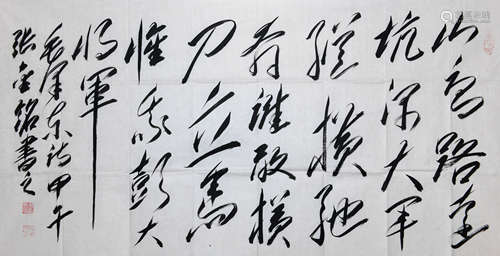 山高路遠
坑深大军
縱横驰
奔谁敢横
刀立馬
惟我彭大
将軍
毛澤东诗甲午
张金铭書之